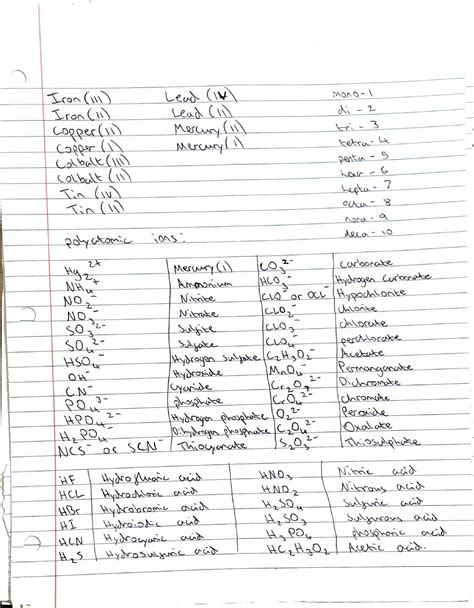 Iron (III) Lead (IV) mono - 1
Iron (II) Lead (II) di - 2
Copper (II) Mercury (II) tri - 3
Copper (I) Mercury (I) tetra - 4
Colbalt (III) penta - 5
Colbalt (II) hexa - 6
Tin (IV) hepta - 7
Tin (II) octa - 8
nona - 9
deca - 10
polyatomic ions:
Hg₂²⁺ Mercury (I) CO₃²⁻ Carbonate
NH₄⁺ Ammonium HCO₃⁻ Hydrogen Carbonate
NO₂⁻ Nitrite ClO⁻ or OCl⁻ Hypochlorite
NO₃⁻ Nitrate ClO₂⁻ chlorite
SO₃²⁻ Sulfite ClO₃⁻ chlorate
SO₄²⁻ Sulfate ClO₄⁻ perchlorate
HSO₄⁻ Hydrogen Sulfate C₂H₃O₂⁻ Acetate
OH⁻ Hydroxide MnO₄⁻ Permanganate
CN⁻ Cyanide Cr₂O₇²⁻ Dichromate
PO₄³⁻ phosphate CrO₄²⁻ chromate
HPO₄²⁻ Hydrogen phosphate O₂²⁻ Peroxide
H₂PO₄⁻ Dihydrogen phosphate C₂O₄²⁻ Oxalate
NCS⁻ or SCN⁻ Thiocyanate S₂O₃²⁻ Thiosulphate
HF Hydrofluoric acid HNO₃ Nitric acid
HCL Hydrochloric acid HNO₂ Nitrous acid
HBr Hydrobromic acid H₂SO₄ Sulfuric acid
HI Hydroiodic acid H₂SO₃ Sulfurous acid
HCN Hydrocyanic acid H₃PO₄ phosphoric acid
H₂S Hydrosulfuric acid HC₂H₃O₂ Acetic acid.